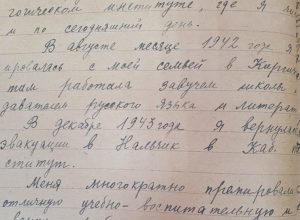 гогическом институте, где я
и по сегодняшний день.
В августе месяце 1942 года я
ировалась с моей семьей в Кирги
там работала завучем школы
давателем русского языка и литерат
В декабре 1943 года я вернула
эвакуации в Нальчик в Каб.
ститут.
Меня многократно премировали
отличную учебно-воспитательную и